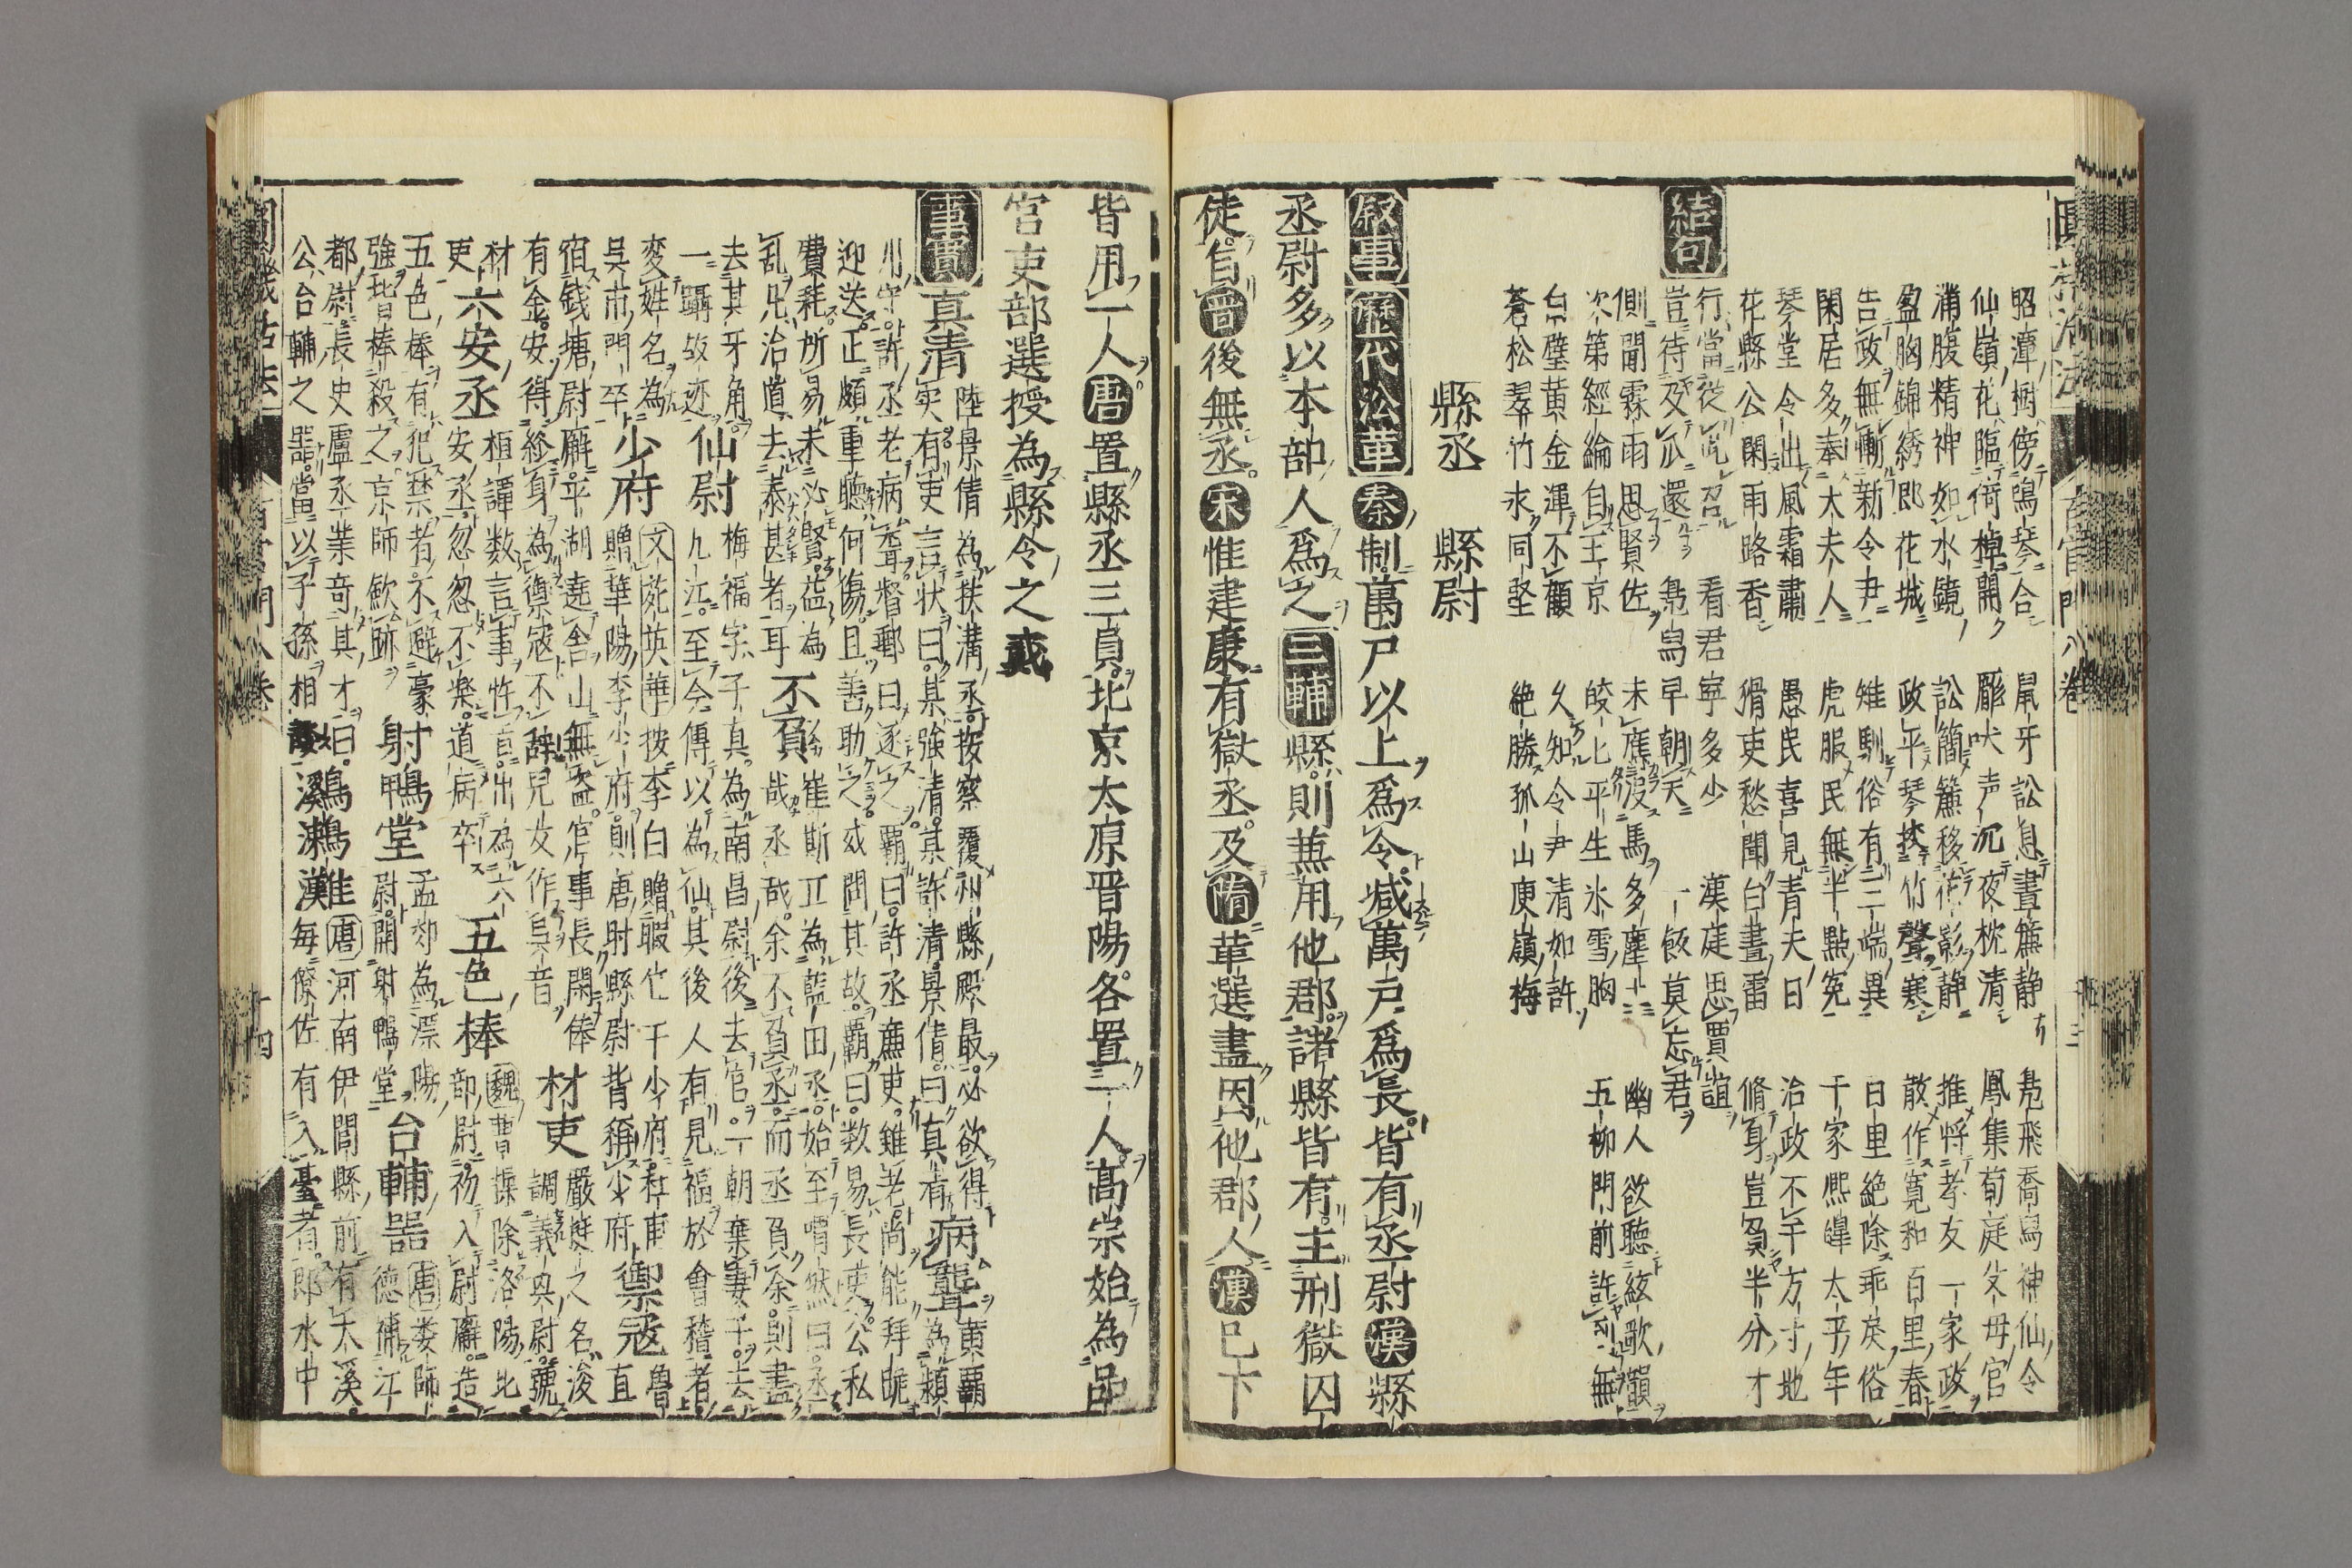 昭潭樹傍鳴琴合　鼠牙訟息晝簾静　鳬飛喬舄神仙令
仙嶺花臨倚棹開　厖吠声沉夜枕清　鳳集荀庭父母官
滿腹精神如水鏡　訟簡簾移花影静　推將孝友一家政
盈胸錦綉郎花城　政平琴挾竹聲寒　散作寛和百里春
告政無慚新令尹　雉馴俗有三端異　日里絶除乖戻俗
閑居多奉大夫人　虎服民無半點寃　千家熈皥太平年
琴堂令出風霜肅　愚民喜見青天日　治政不千方寸地
花縣公閑雨路香　猾吏愁聞白晝雷　脩身豈負半分才
結句
行當從召　看君寧多少　漢庭思賈誼
豈待及瓜還　鳬舄早朝天　一飯莫忘君
側聞霖雨思賢佐　未應没馬多塵土　幽人欲聽絃歌韻
次第經綸自王京　皎七平生氷雪胸　五柳門前許列無
台壁黄金渾不顧　久知令尹清如許
蒼松翠竹求同堅　絶勝孤山庾嶺梅
縣丞　縣尉
叙事　歴代沿革　秦制萬戸以上爲令减萬戸爲長皆有丞尉漢縣
丞尉多以本部人爲之三輔縣則蕪用他郡諸縣皆有主刑獄囚
徒自晋後無丞宋惟建康有獄丞及隋革選盡因他郡人漢已下
皆用一人唐置縣丞三員北京太原晋陽各置二人高宗始為品
官吏部選授為縣令之貳
事實　真清　陸景倩為扶溝丞按察覆州縣殿最必欲得
実有吏言状曰某強清某詐清景倩曰真有　病聾　黄覇為頴
川守許丞老病聾督郵曰逐之覇曰許丞廉吏雖老尚能拜起
迎送正頗重聽何傷且善助之或問其故覇曰数易長吏公私
費耗所易未必賢益為　不負　崔斯立為藍田丞始至喟然曰丞
乱凡治道去泰甚者耳　哉丞哉余不負丞而丞負余則盡
去其牙角　仙尉　梅福字子真為南昌尉後去官一朝棄妻子去
一躡故迹　九江至今傳以為仙其後人有見福於會稽者
変姓名為　少府　文苑英華按李白贈瑕丘王少府和東魯
吳市門卒　贈華陽李少府則唐時縣尉皆稱少府　禦冦　直
宿錢塘尉廨平湖遶舎山無盗官事長閑俸
有金安得終身為禦冦不辭兒女作吳音　材吏　嚴挺之名浚
材　桓譚数言事忤旨出為六　調義興尉號
吏　六安丞　安丞忽忽不楽道病卒　五色棒　魏曹操除洛陽北
部尉初入尉廨造
五色棒有犯禁者不避豪　射鴨堂　孟郊為漂陽　台輔器　唐娄師
強皆棒殺之京師歛跡　尉開射鴨堂　德補江
都尉長史盧丞業奇其才曰　唐河南伊闕縣前有大溪
公台輔之器當以子孫相　毎僚佐有入臺者郎水中